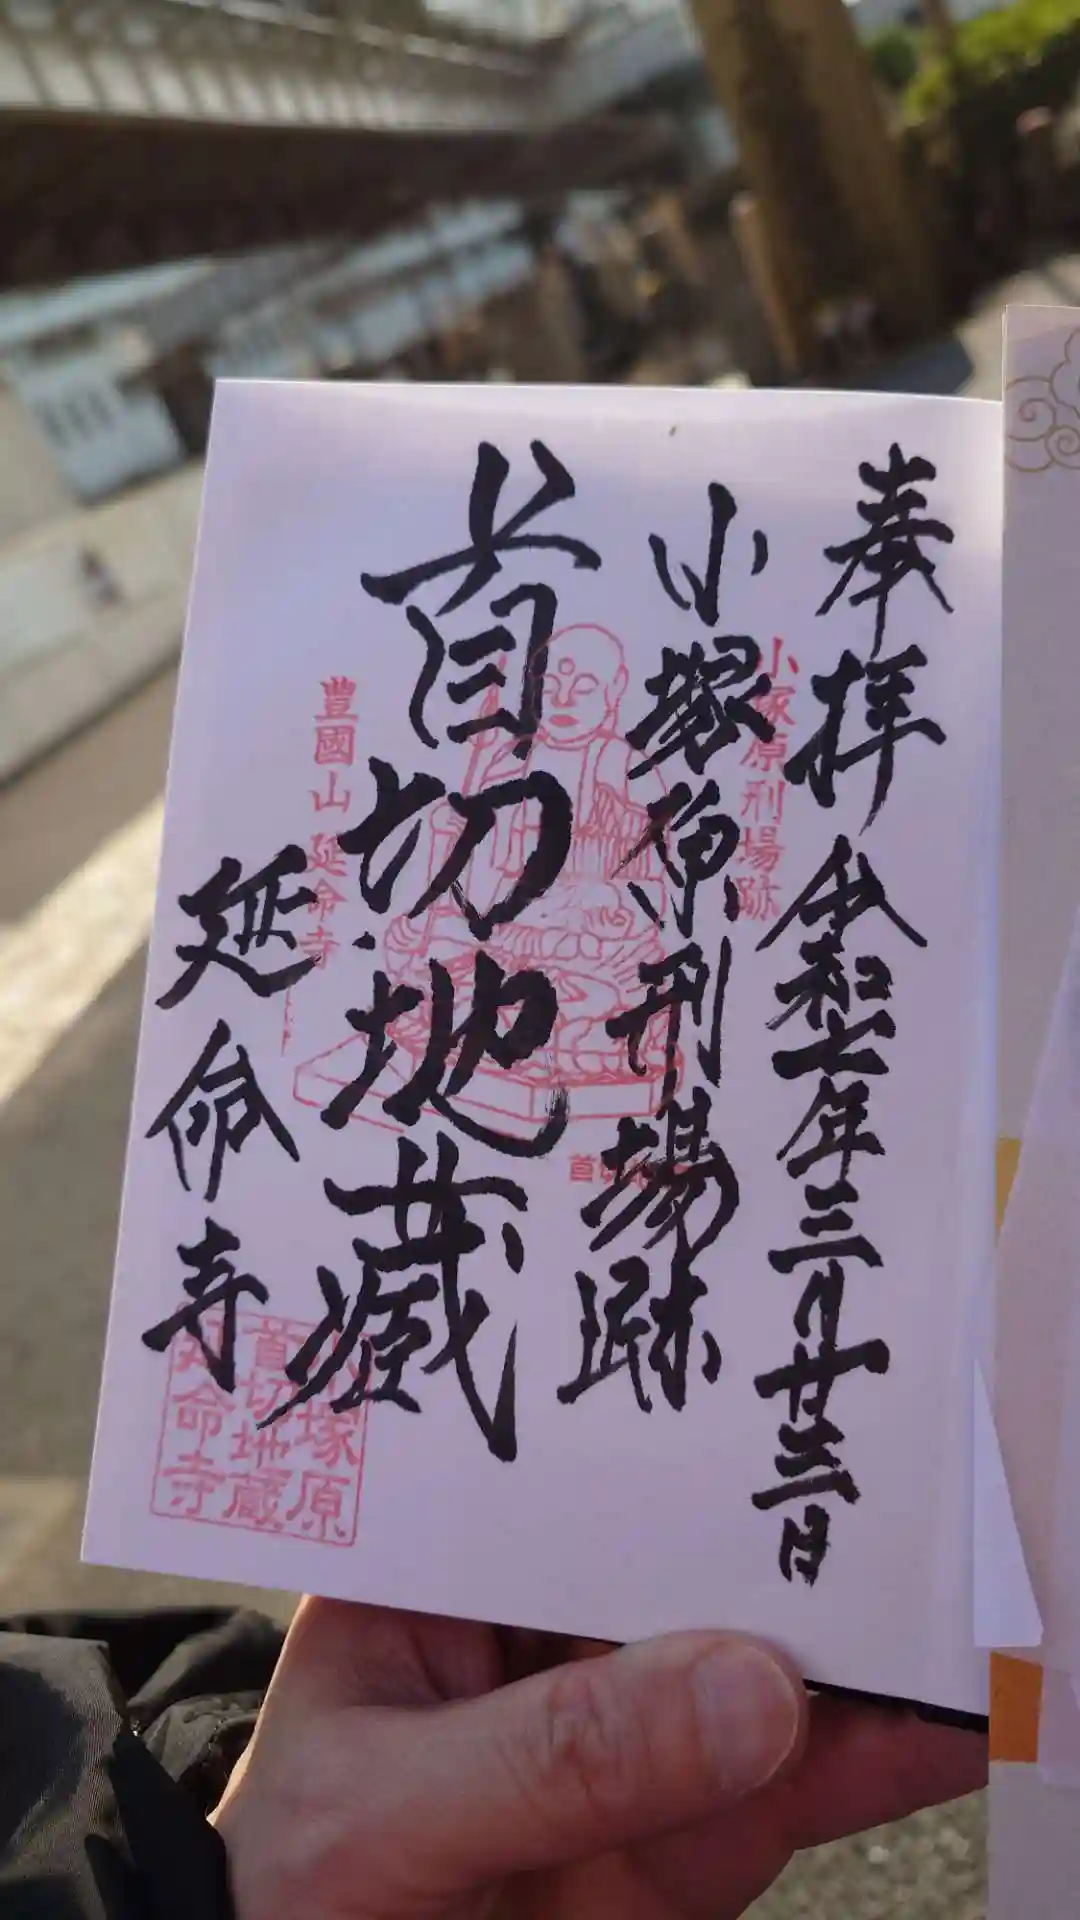 奉拝 令和七年三月廿三日
小塚原刑場跡
小塚原刑場跡
首切地蔵
首切
豊國山 延命寺
延命寺
小塚原
首切地蔵
延命寺